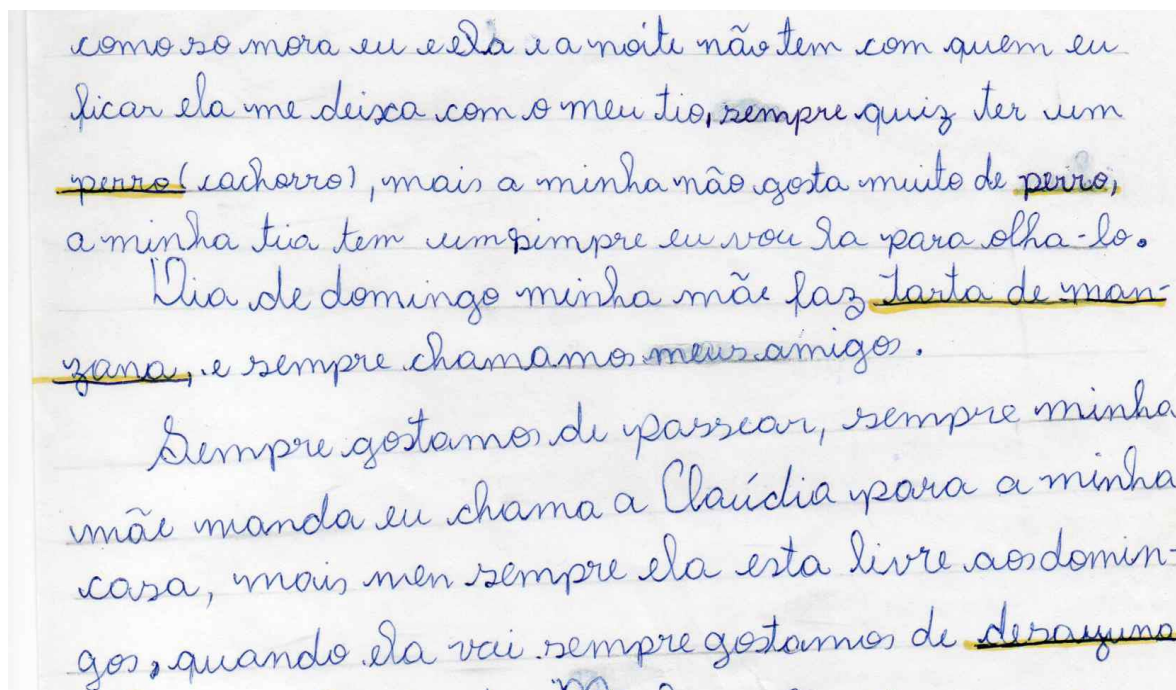 como so mora eu e ela e a noite não tem com quem eu
ficar ela me deixa com o meu tio, sempre quiz ter um
perro (cachorro), mais a minha não gosta muito de perro,
a minha tia tem um simpre eu vou la para olha-lo.
Dia de domingo minha mãe faz tarta de man-
zana, e sempre chamamos meus amigos.
Sempre gostamos de passear, sempre minha
mãe manda eu chama a Claúdia para a minha
casa, mais nen sempre ela esta livre aos domin-
gos, quando ela vai sempre gostamos de desayuna